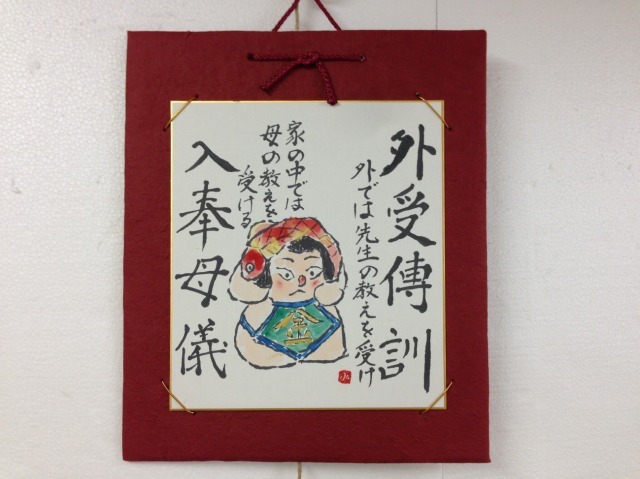 外受傳訓
外では先生の教えを受け
家の中では
母の教えを
受ける
入奉母儀
金